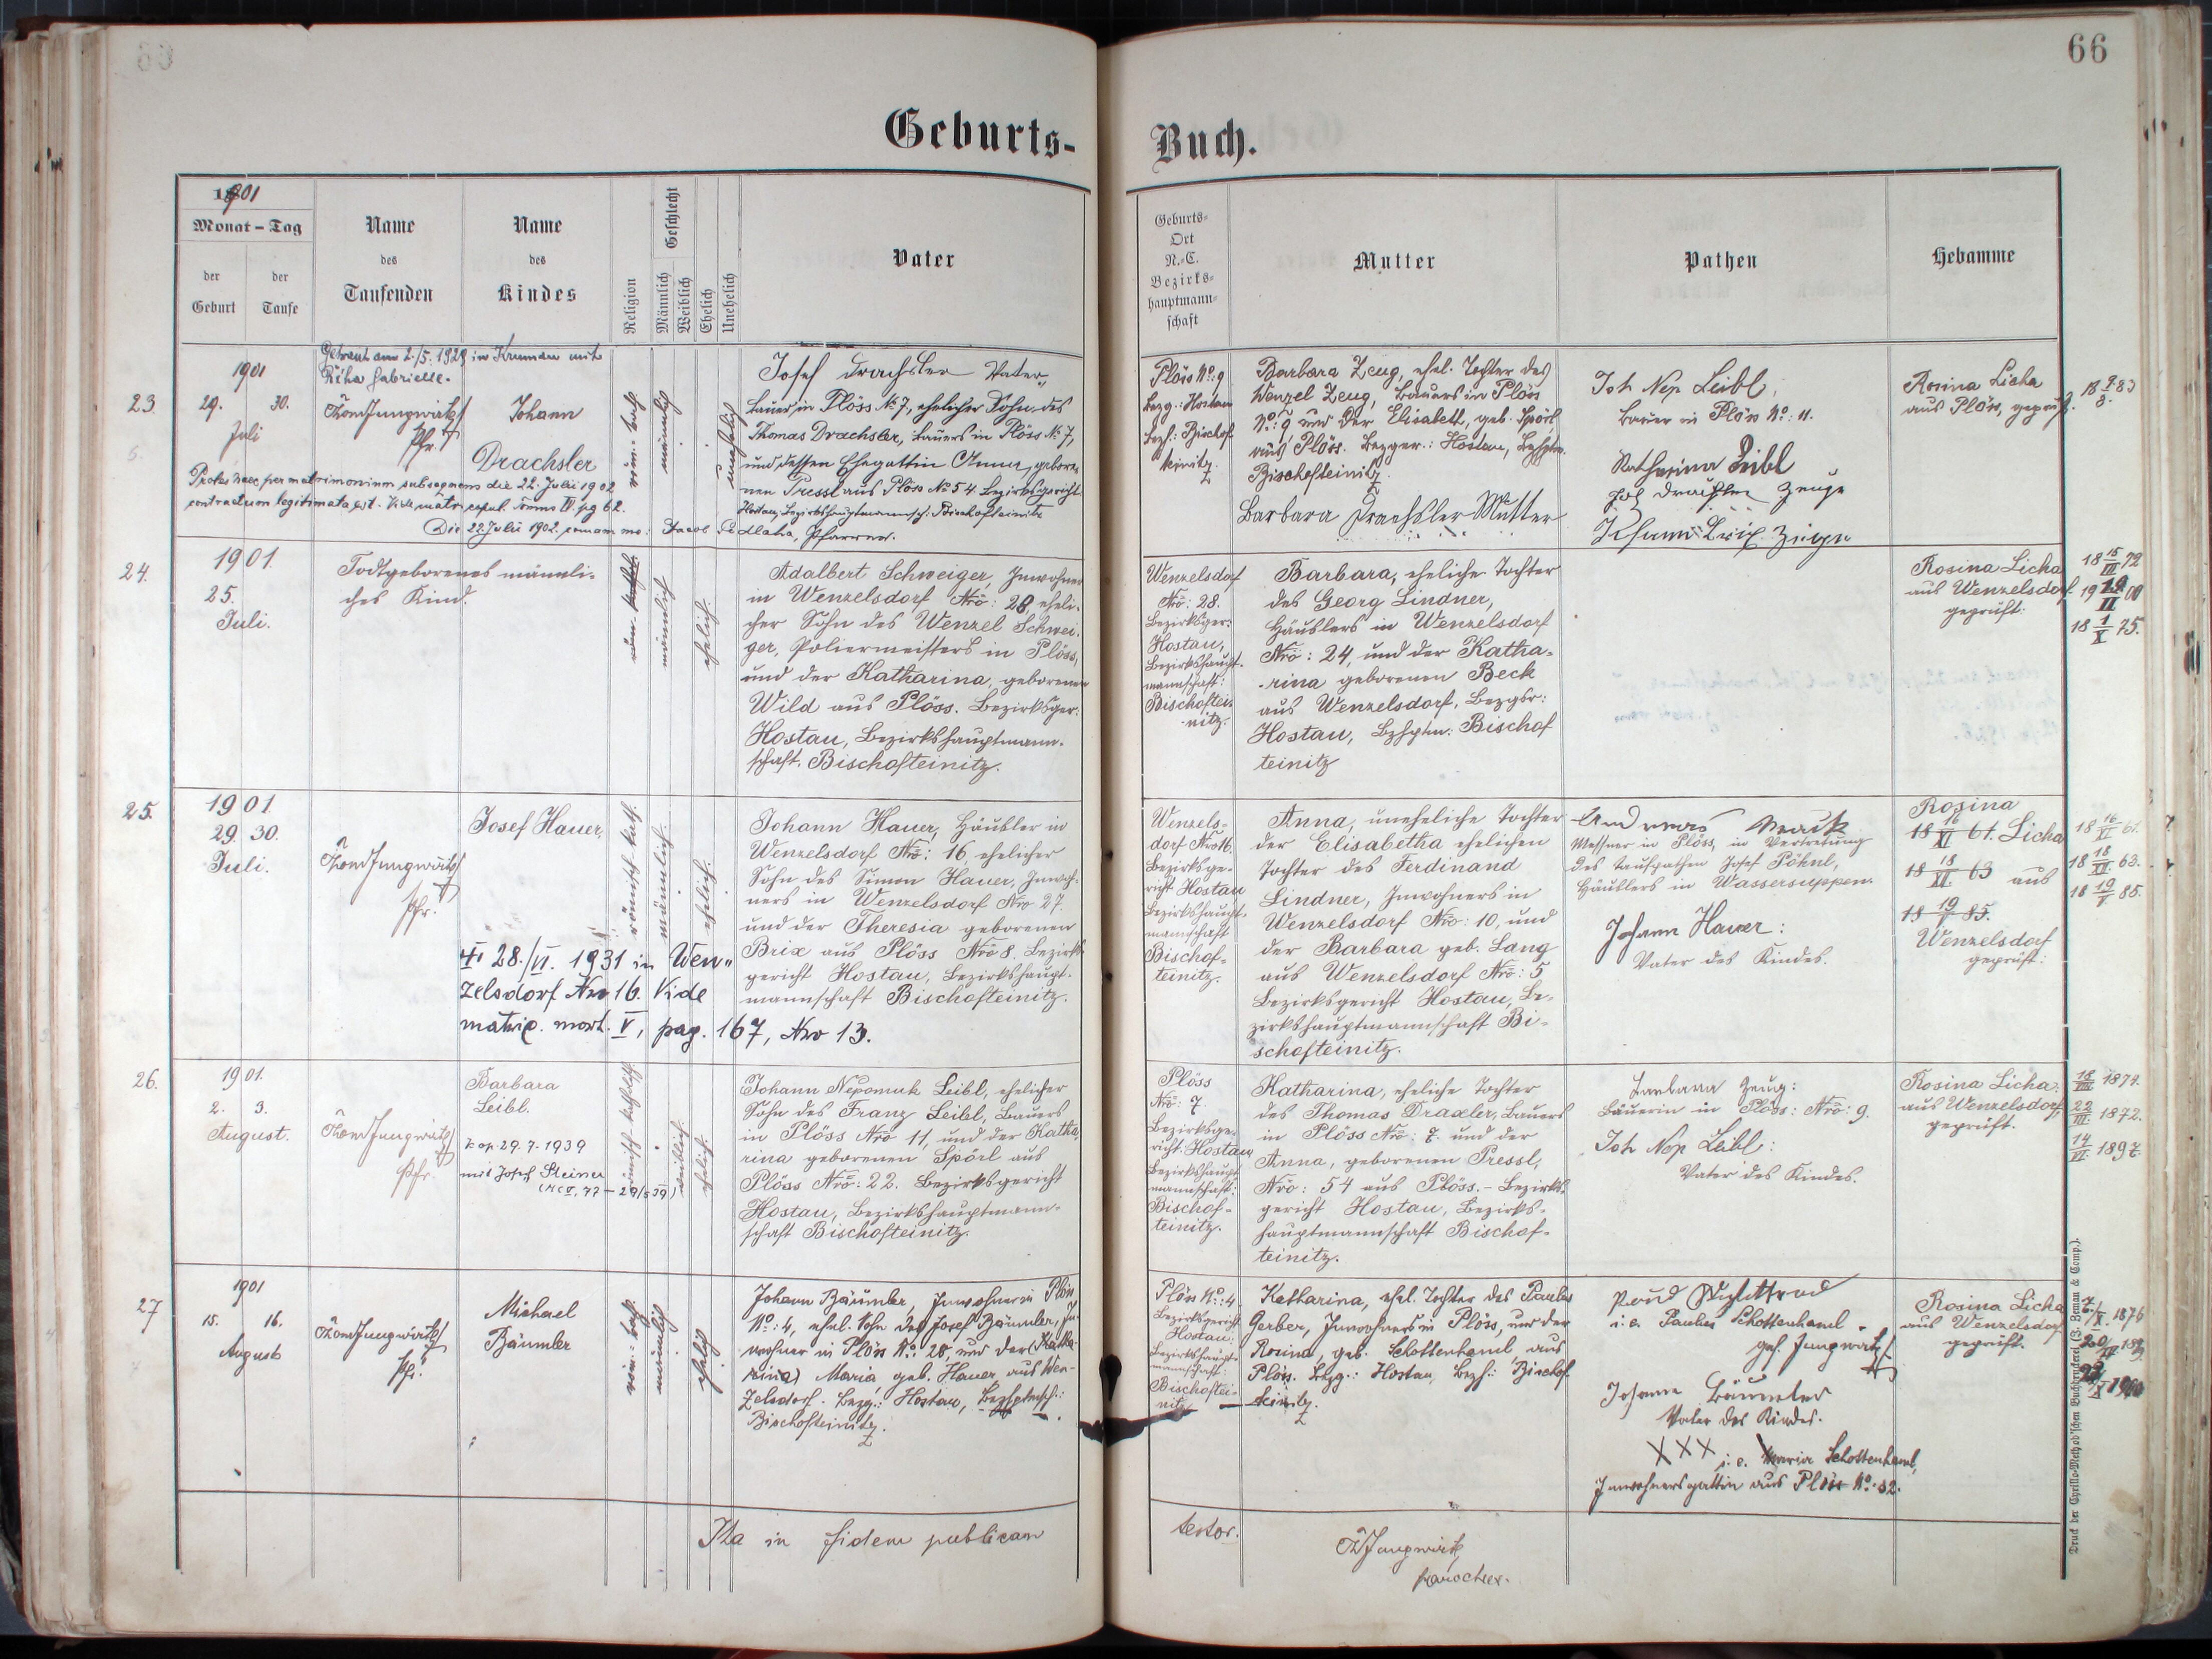 66
Geburts-
Buch.
1901
Monat – Tag
der
Geburt
der
Taufe
Name
des
Taufenden
Name
des
Kindes
Religion
Geschlecht
Männlich
Weiblich
Ehelich
Unehelich
Vater
Geburts-
Ort
N.-C.
Bezirks-
hauptmann-
schaft
Mutter
Pathen
Hebamme
Getraut am 2./5. 1929 in Krumau mit
Řiha Gabrielle.
23.
1901
29. 30.
Juli
Pfr.
Johann
Drachsler
röm.-kath.
männlich
unehelich
Josef Drachsler Vater,
Bauer in Plöss № 7, ehelicher Sohn des
Thomas Drachsler, Bauers in Plöss № 7,
und dessen Ehegattin Anna, gebore-
nen Pressl aus Plöss № 54 Bezirksgericht
Hostau, Bezirkshauptmannsch. Bischofteinitz
Proles haec per matrimonium subsequens die 22. Julii 1902
contractum legitimata est. Vide matr. copul. Tomus IV. pg 62.
Die 22 Julii 1902. coram me: Jacob Sedlaka, Pfarrer.
Plöss № 9
Bezg.: Hostau
Bezh.: Bischof-
teinitz.
Barbara Zeug, ehel. Tochter des
Wenzel Zeug, Bauers in Plöss
№: 9 und der Elisabeth, geb. Spörl
aus Plöss. Bezger.: Hostau, Bzhptm.
Bischofteinitz.
Barbara Drachsler Mutter
Joh Nep Leibl,
Bauer in Plöss №: 11.
Katharina Leibl
Jos Drachsler Zeuge
Johann Brix Zeuge
Rosina Licha
aus Plöss, geprüft.
24.
1901
25.
Juli.
Todtgeborenes männli-
ches Kind.
männlich
ehelich.
Adalbert Schweiger, Inwohner
in Wenzelsdorf Nro: 28, eheli-
cher Sohn des Wenzel Schwei-
ger, Poliermeisters in Plöss,
und der Katharina, geborenen
Wild aus Plöss. Bezirksger:
Hostau, Bezirkshauptmann-
schaft. Bischofteinitz.
Wenzelsdorf
Nro: 28.
Bezirksger:
Hostau,
Bezirkshaupt-
mannschaft:
Bischoftei-
nitz.
Barbara, eheliche Tochter
des Georg Lindner,
Häuslers in Wenzelsdorf
Nro: 24, und der Katha-
rina geborenen Beck
aus Wenzelsdorf, Bezgsr:
Hostau, Bzhptm: Bischof
teinitz
Rosina Licha
aus Wenzelsdorf
geprüft:
18 15/III 72
19 19/II 00
18 1/X 75.
25.
1901
29. 30.
Juli.
Pfr.
Josef Hauer,
römisch kath.
männlich.
ehelich.
Johann Hauer, Häusler in
Wenzelsdorf Nro: 16, ehelicher
Sohn des Simon Hauer, Inwoh-
ners in Wenzelsdorf Nro 27.
und der Theresia geborenen
Brix aus Plöss Nro 8. Bezirks-
gericht Hostau, Bezirkshaupt-
mannschaft Bischofteinitz.
28./VI. 1931 in Wen-
zelsdorf Nro 16. Vide
matric. mort. V, pag. 167, Nro 13.
Wenzels-
dorf Nro 16.
Bezirksge-
richt Hostau
Bezirkshaupt-
mannschaft
Bischof-
teinitz.
Anna, uneheliche Tochter
der Elisabetha ehelichen
Tochter des Ferdinand
Lindner, Inwohners in
Wenzelsdorf Nro: 10, und
der Barbara geb. Lang
aus Wenzelsdorf Nro: 5
Bezirksgericht Hostau, Be-
zirkshauptmannschaft Bi-
schofteinitz.
Messner in Plöss, in Vertretung
des Taufpathen Josef Pöhnl,
Häuslers in Wassersuppen.
Johann Hauer:
Vater des Kindes.
Rosina
18 16/XI 61. Licha
18 18/VI 63 aus
18 19/V 85.
Wenzelsdorf
geprüft:
18 16/XI 61.
18 18/VI 63.
18 19/V 85.
26.
1901.
2. 3.
August.
Pfr.
Barbara
Leibl.
kop. 29. 7. 1939
mit Josef Steiner
römisch katholisch
weiblich.
ehelich.
Johann Nepomuk Leibl, ehelicher
Sohn des Franz Leibl, Bauers
in Plöss Nro 11, und der Katha-
rina geborenen Spörl aus
Plöss Nro: 22. Bezirksgericht
Hostau, Bezirkshauptmann-
schaft Bischofteinitz.
Plöss
Nro: 7.
Bezirksge-
richt: Hostau
Bezirkshaupt-
mannschaft:
Bischof-
teinitz.
Katharina, eheliche Tochter
des Thomas Draxler, Bauers
in Plöss Nro: 7. und der
Anna, geborenen Pressl,
Nro: 54 aus Plöss. – Bezirks-
gericht Hostau, Bezirks-
hauptmannschaft Bischof-
teinitz.
Barbara Zeug:
Bäuerin in Plöss: Nro: 9.
Joh Nep Leibl:
Vater des Kindes.
Rosina Licha.
aus Wenzelsdorf,
geprüft.
22/III. 1872.
14/VI. 1897.
27
1901
15. 16.
August
Pfr.
Michael
Bäumler
röm.-kath.
männlich
ehelich
Johann Bäumler, Inwohner in Plöss
№: 4, ehel. Sohn des Josef Bäumler, In-
wohner in Plöss №: 28, und der (Katha-
rina) Maria, geb. Hauer aus Wen-
zelsdorf. Bezg.: Hostau, Bezhptmsch.:
Bischofteinitz.
Plöss №: 4
Bezirksgericht
Hostau:
Bezirkshaupt-
mannschaft:
Bischoftei-
nitz
Katharina, ehel. Tochter des Paulus
Gerber, Inwohners in Plöss, und der
Rosina, geb. Schottenhaml aus
Plöss. Bezg.: Hostau, Bezh.: Bischof-
teinitz.
i. e. Paulus Schottenhaml.
Johann Bäumler
Vater des Kindes.
XXX i. e. Maria Schottenhaml,
Inwohnersgattin aus Plöss №: 32.
Rosina Licha
aus Wenzelsdorf
geprüft.
Ita in fidem publicam
testor.
Jungwirth,
parochus.